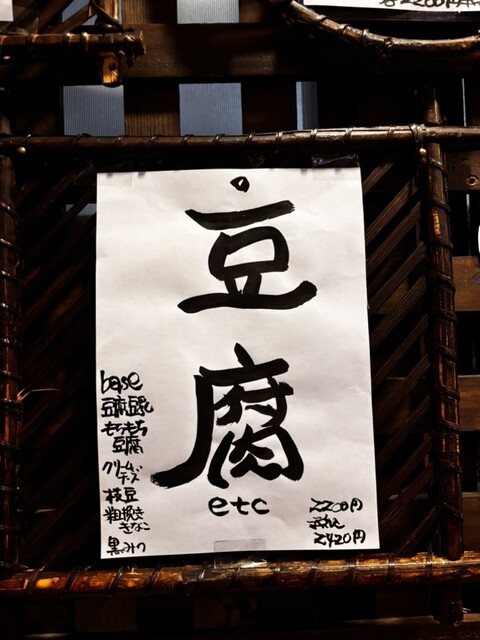 豆
腐
etc
base
豆腐豆乳
もちもち
豆腐
クリーム
チーズ
枝豆
粗挽き
きなこ
黒みつ
2200円
税込
2420円